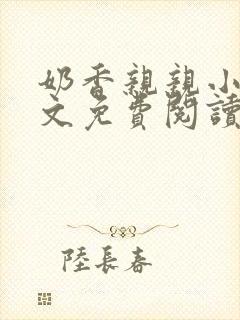 奶香親親小
文免費閱讀
陸長春